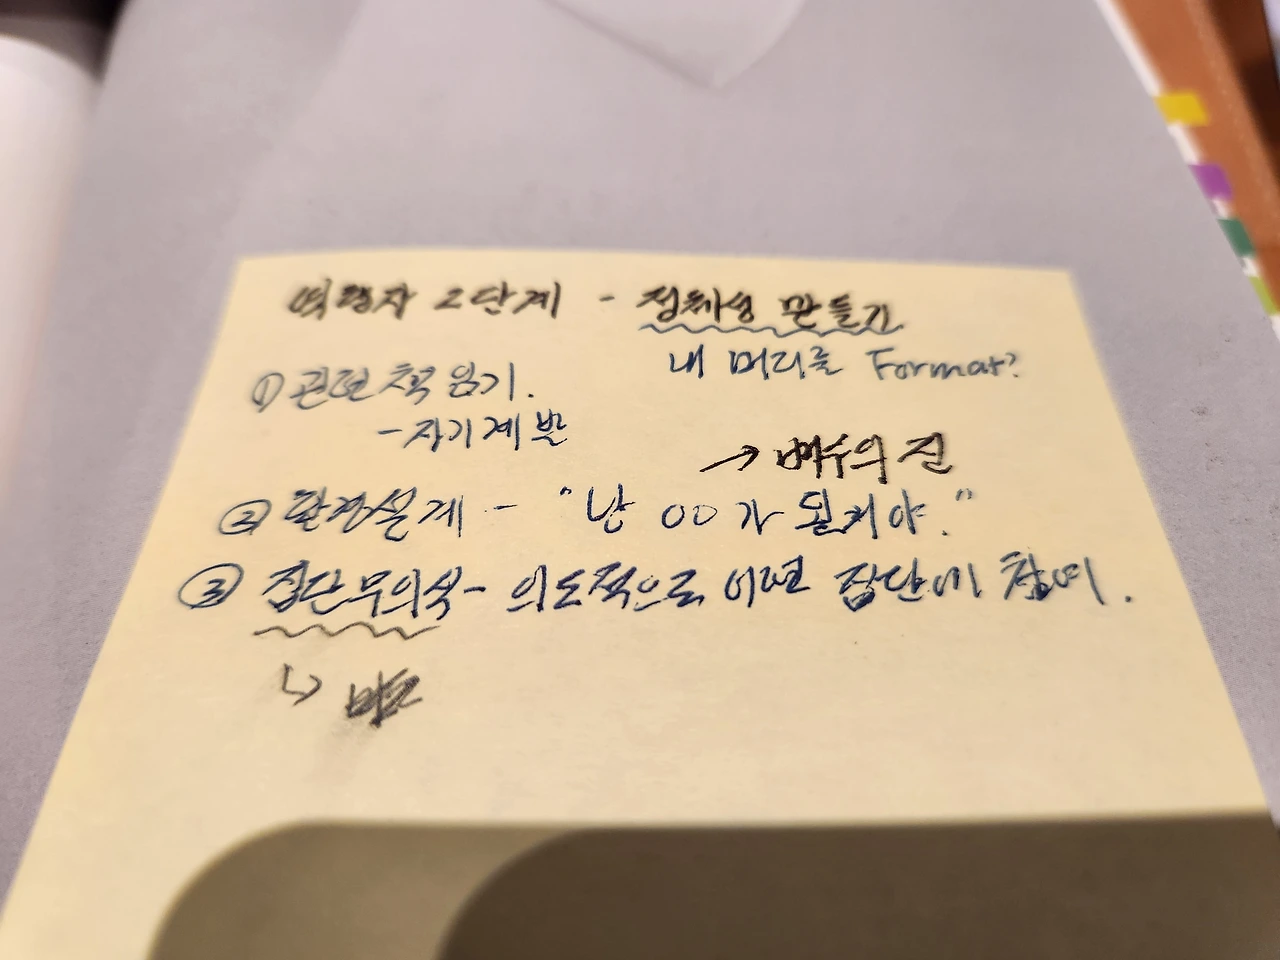 역행자 2단계 - 정체성 만들기
내 머리를 Format?
① 관련 책 읽기.
- 자기계발
→ 배수의 진
② 환경설계 - "난 OO가 될거야."
③ 집단무의식 - 의도적으로 어떤 집단에 참여.
↳